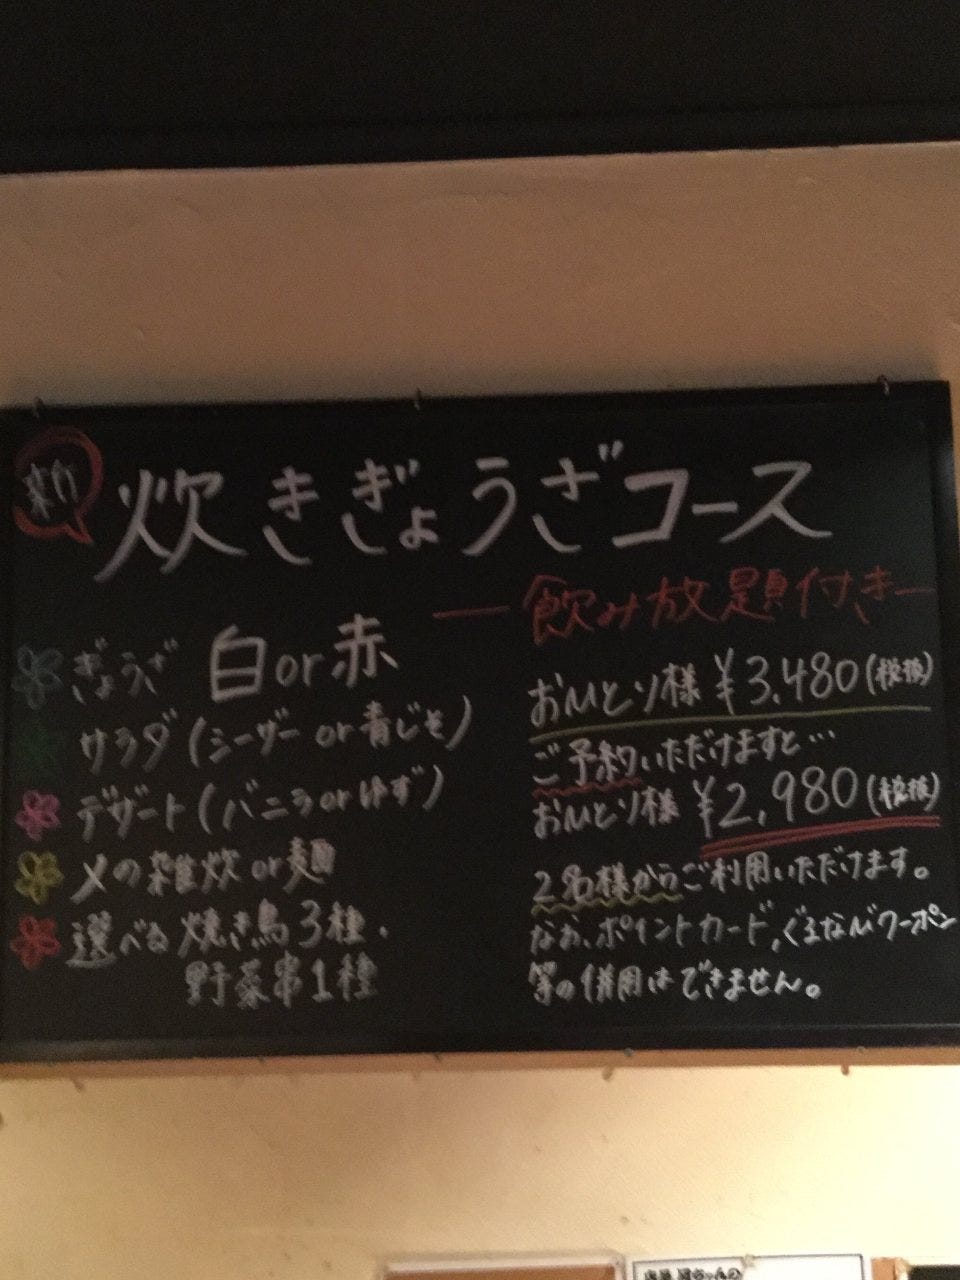 炊きぎょうざコース
飲み放題付き
ぎょうざ 白or赤
サラダ(シーザー or 青じそ)
デザート(バニラ or ゆず)
〆の雑炊 or 麺
選べる 焼き鳥3種・
野菜串1種
おひとり様 ¥3,480(税抜)
ご予約いただけますと…
おひとり様 ¥2,980(税抜)
2名様からご利用いただけます。
なお、ポイントカード、ぐるなびクーポン
等の併用はできません。